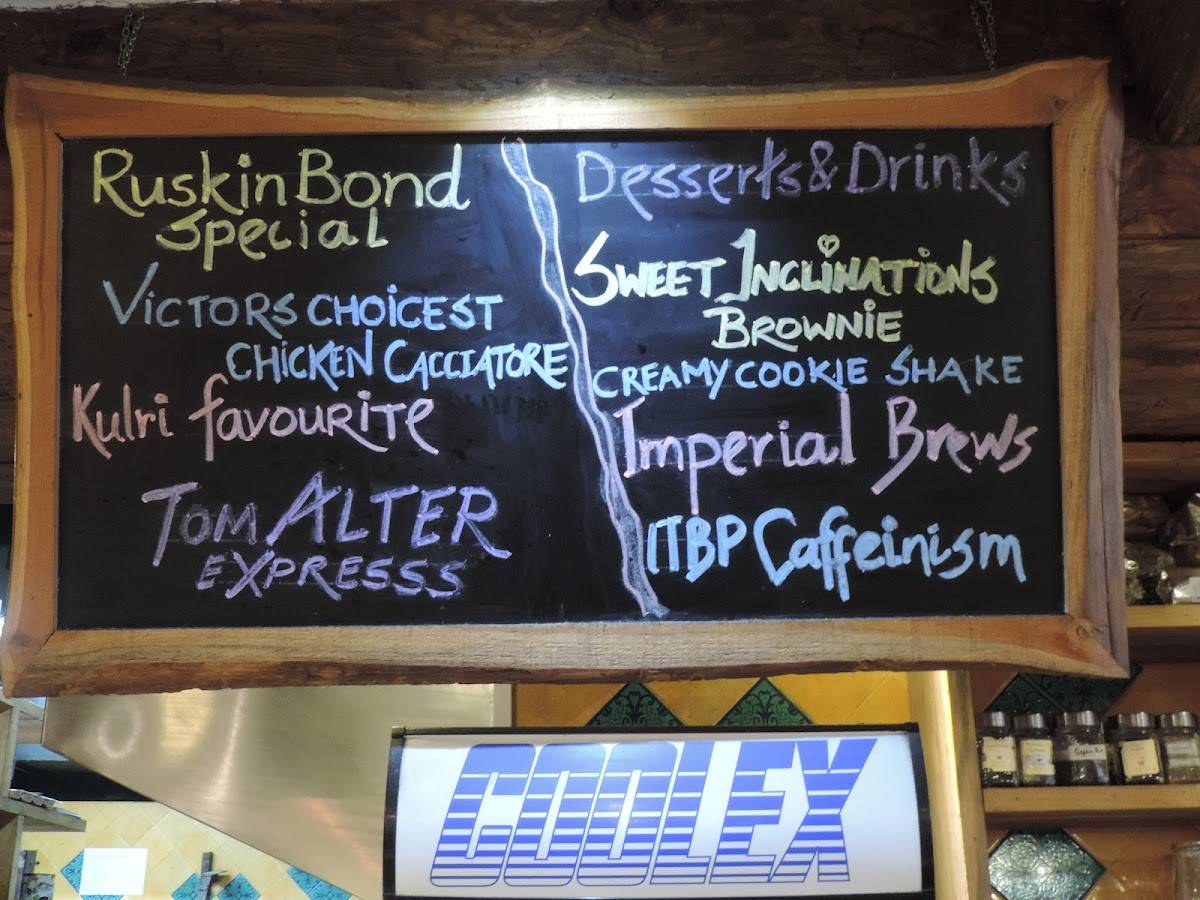 Ruskin Bond
Special
Victors choicest
chicken Cacciatore
Kulri favourite
Tom Alter
expresss
Desserts & Drinks
Sweet Inclinations
Brownie
creamy cookie shake
Imperial Brews
ITBP Caffeinism
COOLEX